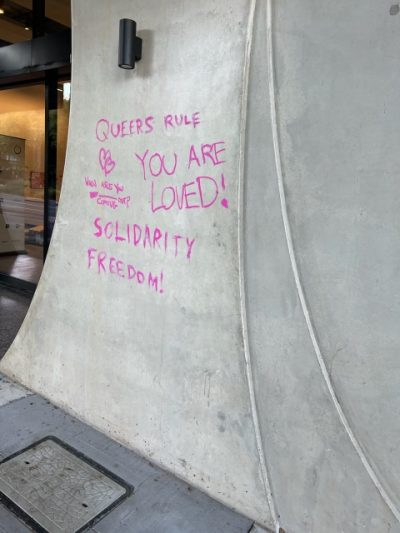 QUEERS RULE
YOU ARE
LOVED!
WHEN ARE YOU
COMING OUT?
SOLIDARITY
FREEDOM!